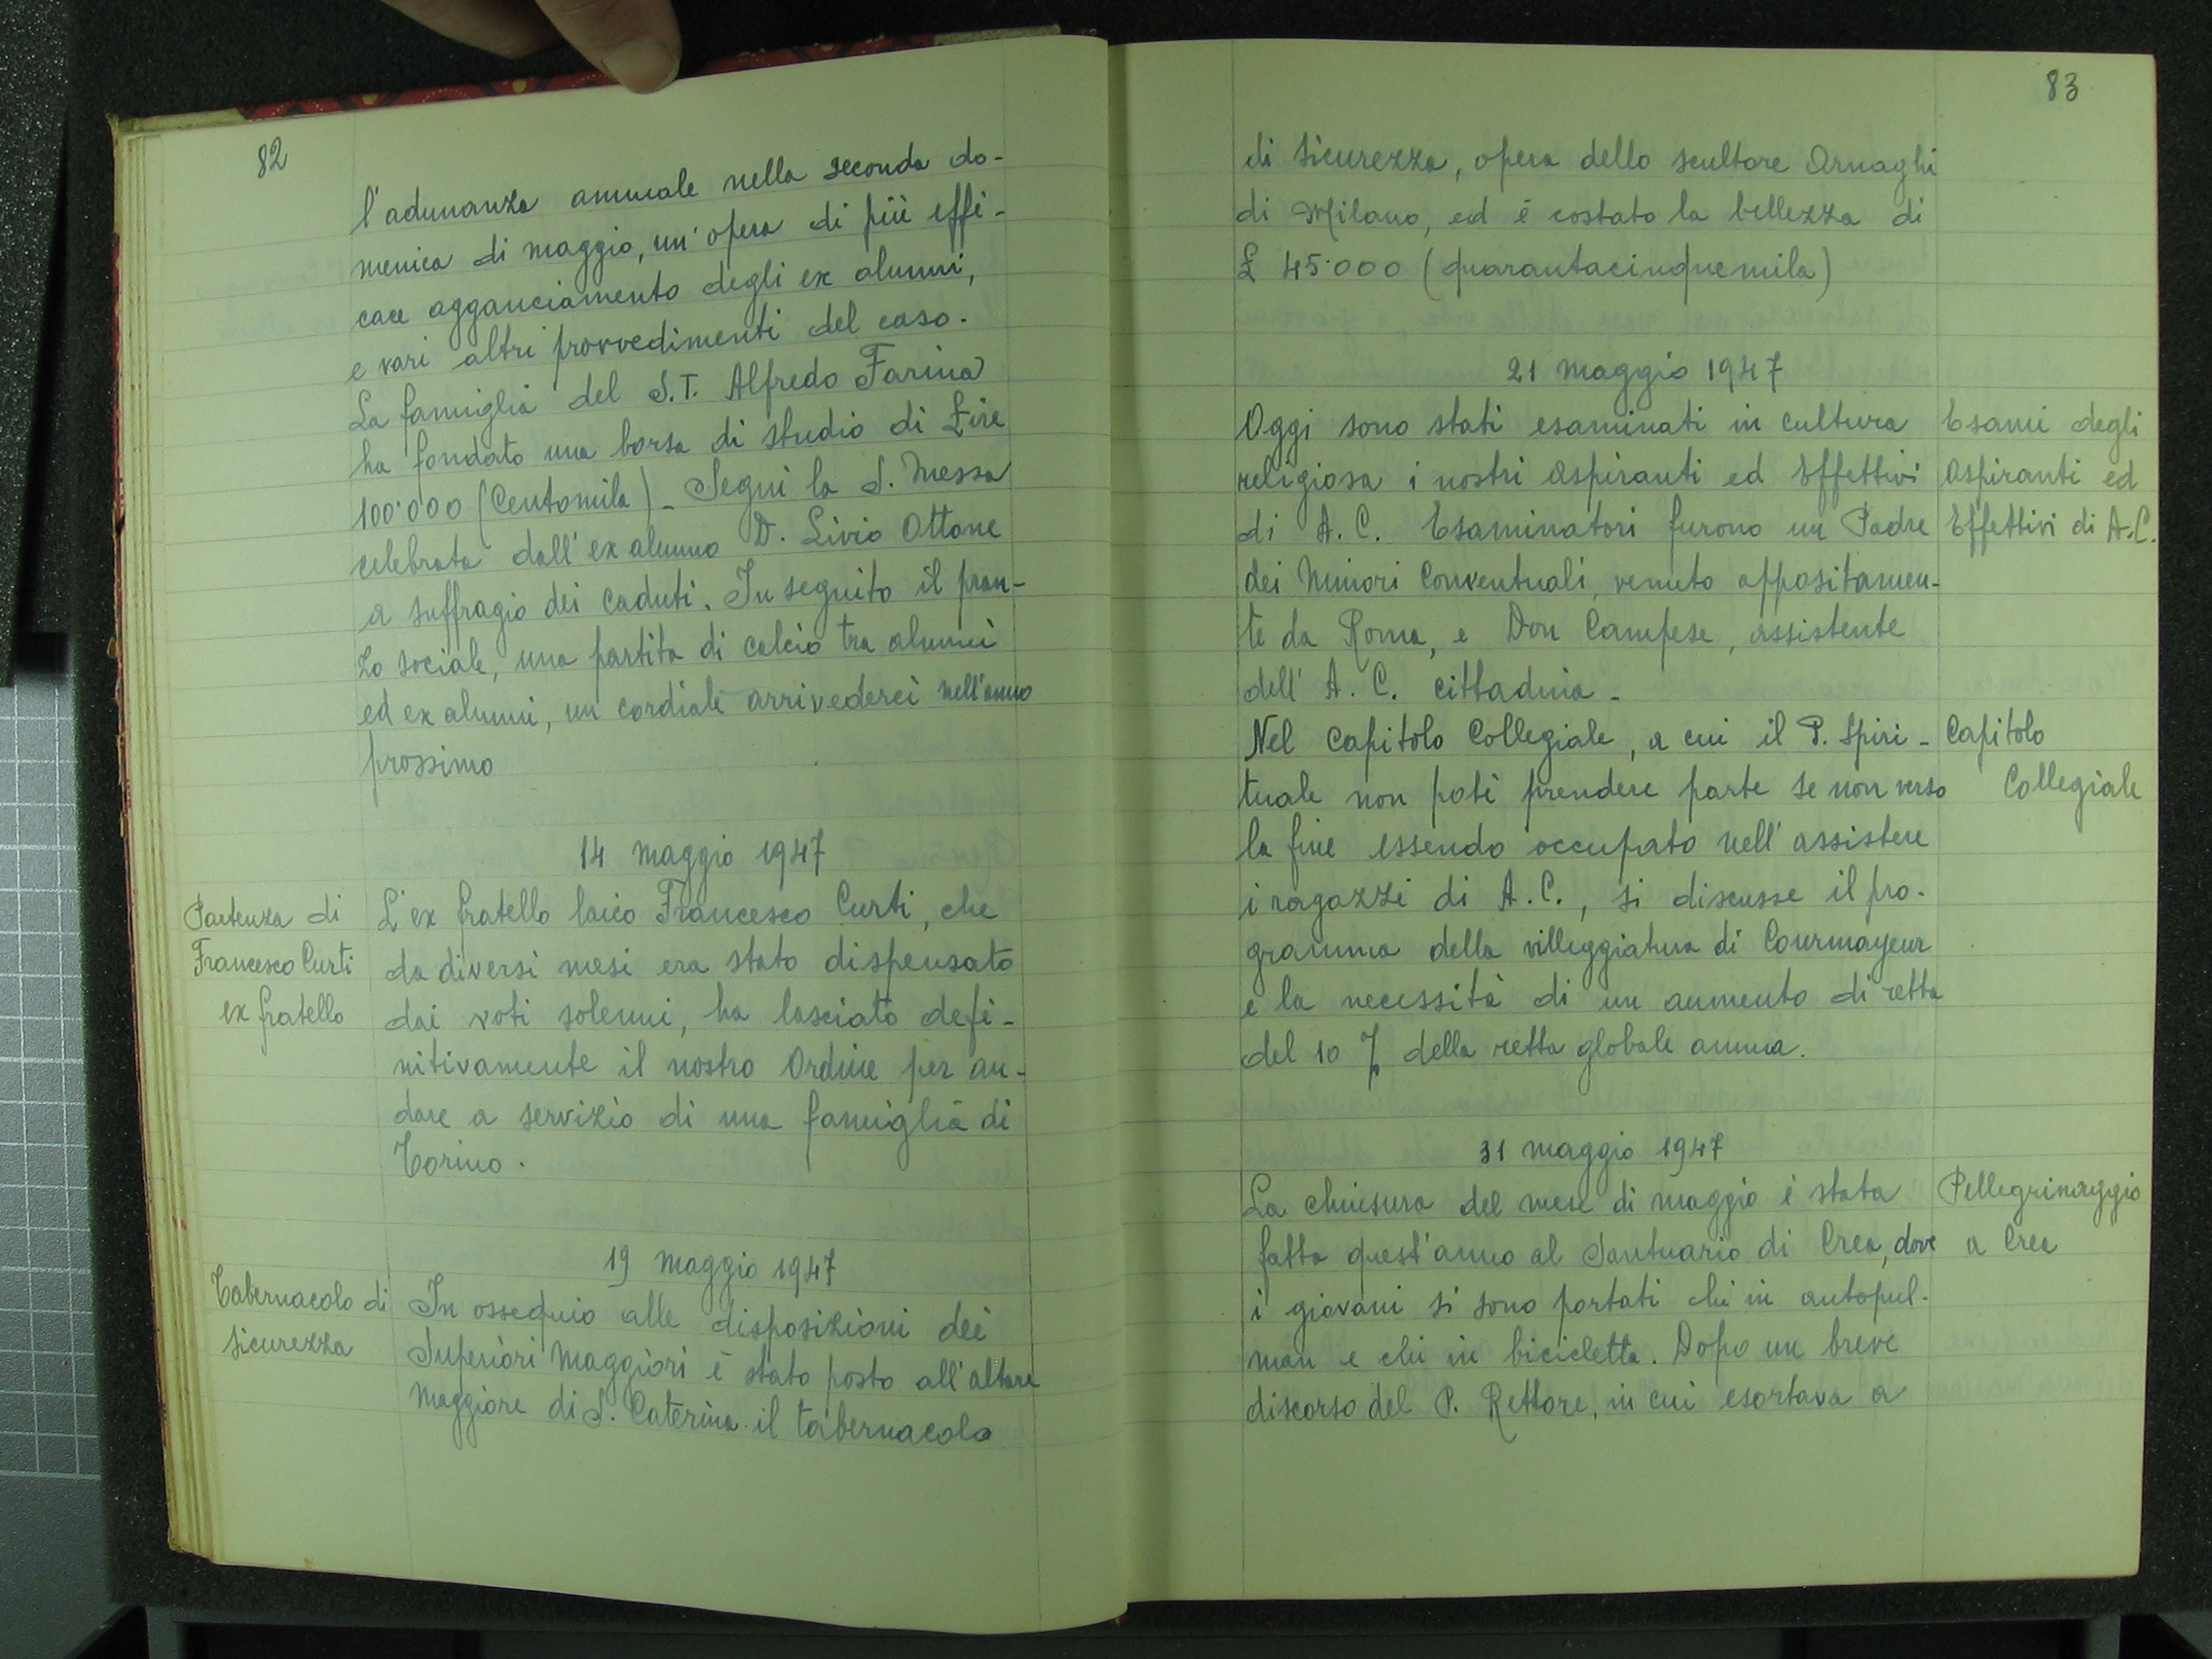 82
l'adunanza annuale nella seconda do-
menica di maggio, un'opera di più effi-
cace agganciamento degli ex alunni,
e vari altri provvedimenti del caso.
La famiglia del S.T. Alfredo Farina
ha fondato una borsa di studio di Lire
100.000 (Centomila) - Seguì la S. Messa
celebrata dall'ex alunno D. Livio Ottone
a suffragio dei caduti. In seguito il pran-
zo sociale, una partita di calcio tra alunni
ed ex alunni, un cordiale arrivederci nell'anno
prossimo
14 maggio 1947
Partenza di
Francesco Curti
ex fratello
L'ex fratello laico Francesco Curti, che
da diversi mesi era stato dispensato
dai voti solenni, ha lasciato defi-
nitivamente il nostro Ordine per an-
dare a servizio di una famiglia di
Torino.
19 maggio 1947
Tabernacolo di
sicurezza
In ossequio alle disposizioni dei
Superiori Maggiori è stato posto all'altare
Maggiore di S. Caterina il tabernacolo
83
di sicurezza, opera dello scultore Ornaghi
di Milano, ed è costato la bellezza di
£ 45.000 (quarantacinquemila)
21 maggio 1947
Oggi sono stati esaminati in cultura
religiosa i nostri aspiranti ed Effettivi
di A. C. Esaminatori furono un Padre
dei Minori Conventuali, venuto appositamen-
te da Roma, e Don Campese, assistente
dell' A. C. cittadina -
Esami degli
Aspiranti ed
Effettivi di A.C.
Nel Capitolo Collegiale, a cui il P. Spiri-
tuale non poté prendere parte se non verso
la fine essendo occupato nell'assistere
i ragazzi di A.C., si discusse il pro-
gramma della villeggiatura di Courmayeur
e la necessità di un aumento di retta
del 10 % della retta globale annua.
Capitolo
Collegiale
31 maggio 1947
La chiusura del mese di maggio è stata
fatta quest'anno al Santuario di Crea, dove
i giovani si sono portati chi in autopul-
man e chi in bicicletta. Dopo un breve
discorso del P. Rettore, in cui esortava a
Pellegrinaggio
a Crea